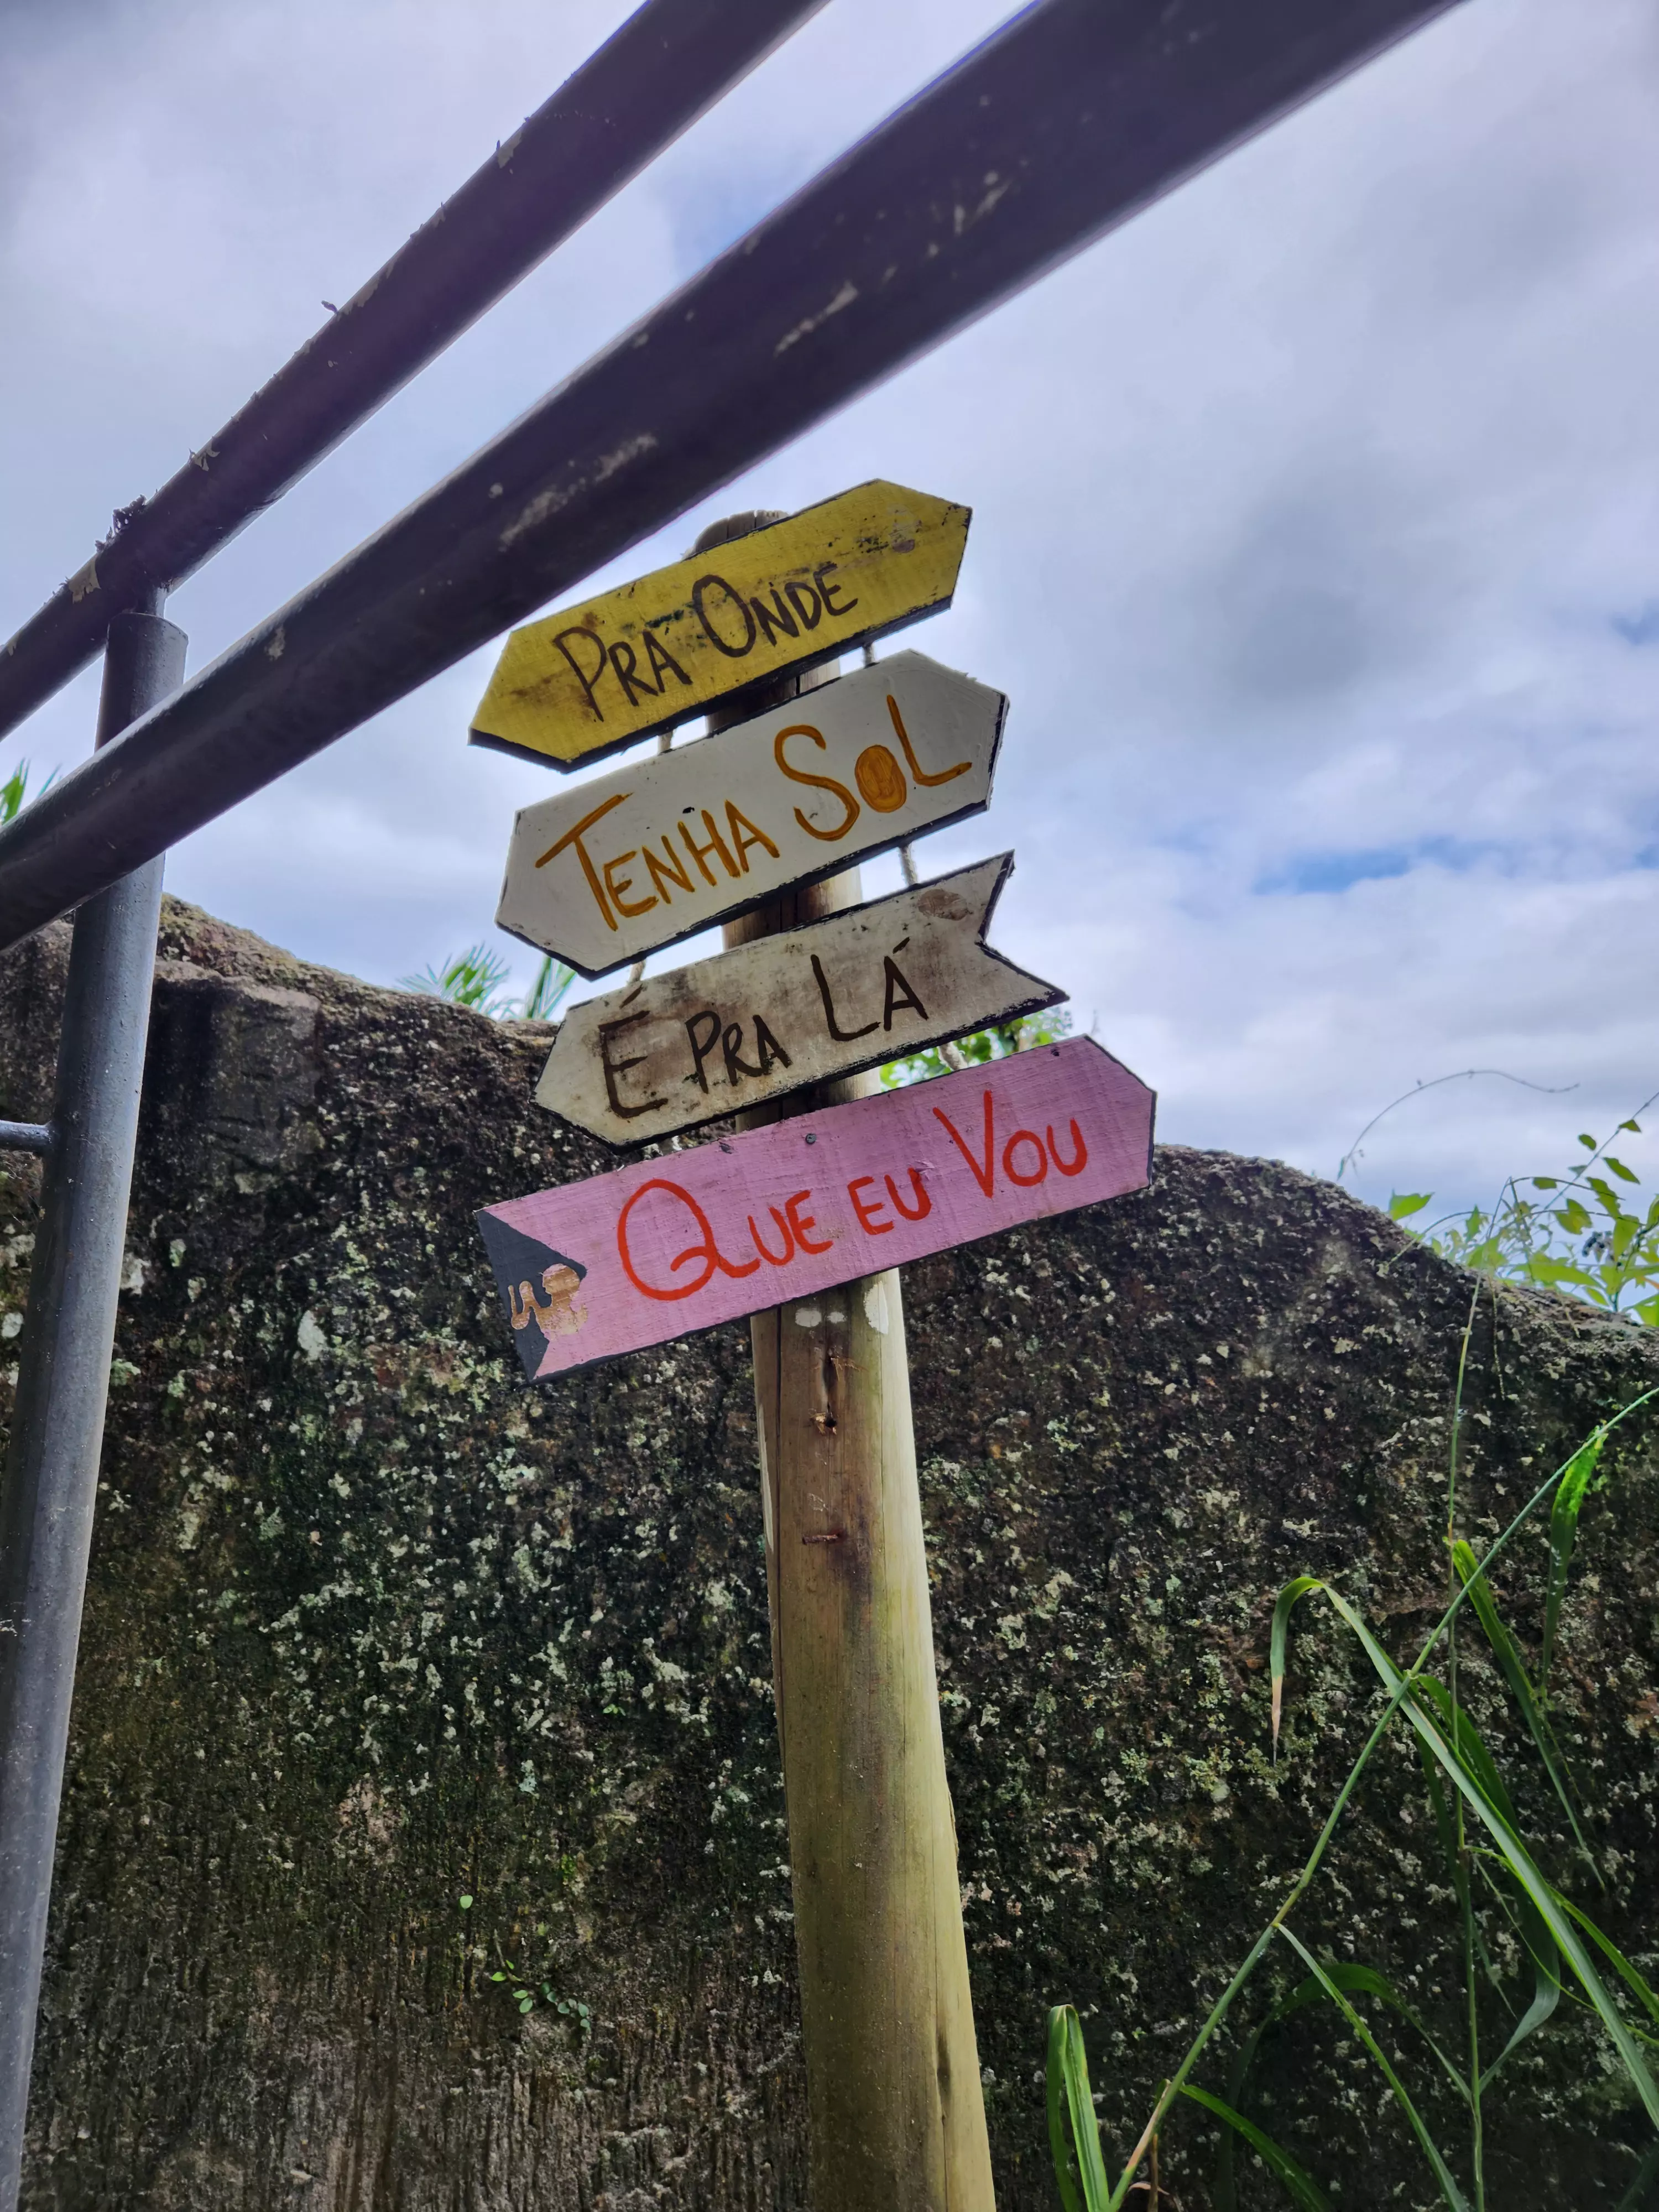 PRA ONDE
TENHA SOL
É PRA LÁ
QUE EU VOU